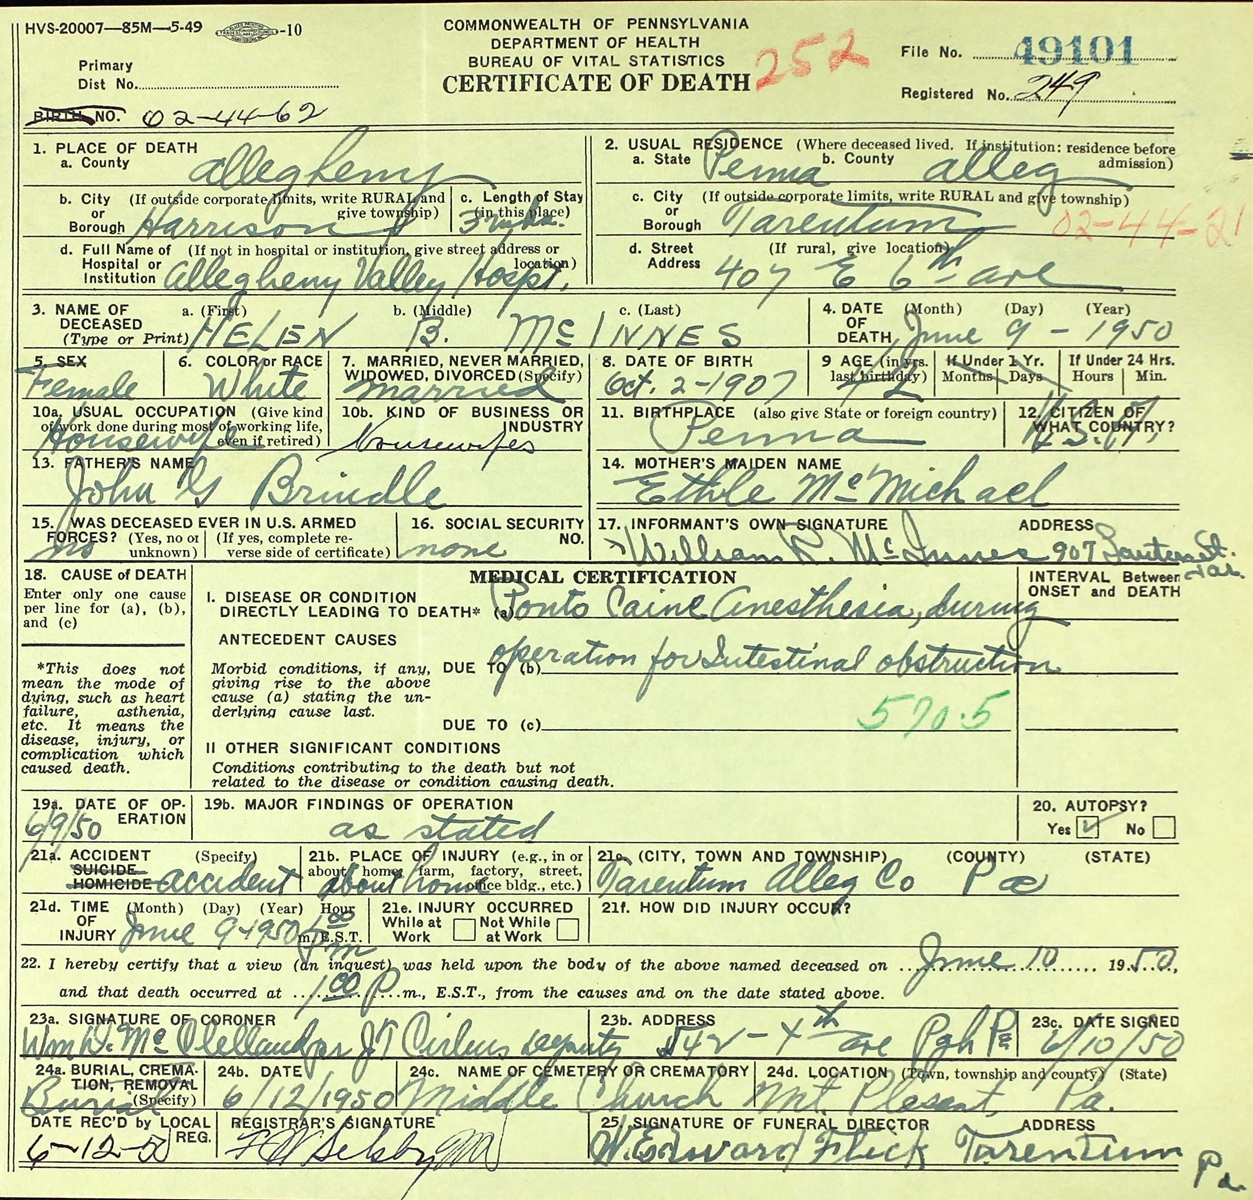 HVS-20007—85M—5-49 -10
COMMONWEALTH OF PENNSYLVANIA
DEPARTMENT OF HEALTH
BUREAU OF VITAL STATISTICS
CERTIFICATE OF DEATH
252
File No. 49101
Registered No. 249
Primary
Dist No.
BIRTH NO. 02-44-62
1. PLACE OF DEATH
a. County Allegheny
b. City or Borough (If outside corporate limits, write RURAL and give township) Harrison
c. Length of Stay (in this place)
d. Full Name of Hospital or Institution (If not in hospital or institution, give street address or location) Allegheny Valley Hospt.
2. USUAL RESIDENCE (Where deceased lived. If institution: residence before admission)
a. State Penna b. County Alleg
c. City or Borough (If outside corporate limits, write RURAL and give township) Tarentum
02-44-21
d. Street Address (If rural, give location) 407 E 6th ave
3. NAME OF DECEASED (Type or Print) a. (First) HELEN b. (Middle) B. c. (Last) McINNES
4. DATE OF DEATH (Month) (Day) (Year) June 9 - 1950
5. SEX Female
6. COLOR or RACE White
7. MARRIED, NEVER MARRIED, WIDOWED, DIVORCED (Specify) married
8. DATE OF BIRTH Oct. 2-1907
9 AGE (in yrs. last birthday) 42
If Under 1 Yr. Months Days
If Under 24 Hrs. Hours Min.
10a. USUAL OCCUPATION (Give kind of work done during most of working life, even if retired) Housewife
10b. KIND OF BUSINESS OR INDUSTRY housewifes
11. BIRTHPLACE (also give State or foreign country) Penna
12. CITIZEN OF WHAT COUNTRY? U.S.A.
13. FATHER'S NAME
John G Brindle
14. MOTHER'S MAIDEN NAME
Ethle McMichael
15. WAS DECEASED EVER IN U.S. ARMED FORCES? (Yes, no or unknown) (If yes, complete reverse side of certificate) no
16. SOCIAL SECURITY NO. none
17. INFORMANT'S OWN SIGNATURE ADDRESS
William R. McInnes 907 St. Tar.
18. CAUSE of DEATH
Enter only one cause per line for (a), (b), and (c)
*This does not mean the mode of dying, such as heart failure, asthenia, etc. It means the disease, injury, or complication which caused death.
MEDICAL CERTIFICATION
INTERVAL Between ONSET and DEATH
I. DISEASE OR CONDITION DIRECTLY LEADING TO DEATH* (a) Ponto Caine Anesthesia, during
ANTECEDENT CAUSES
Morbid conditions, if any, giving rise to the above cause (a) stating the underlying cause last.
DUE TO (b) operation for Intestinal obstruction
DUE TO (c)
570.5
II OTHER SIGNIFICANT CONDITIONS
Conditions contributing to the death but not related to the disease or condition causing death.
19a. DATE OF OPERATION 6/9/50
19b. MAJOR FINDINGS OF OPERATION
as stated
20. AUTOPSY?
Yes ✓ No
21a. ACCIDENT SUICIDE HOMICIDE (Specify) accident
21b. PLACE OF INJURY (e.g., in or about home, farm, factory, street, office bldg., etc.) about home
21c. (CITY, TOWN AND TOWNSHIP) (COUNTY) (STATE)
Tarentum Alleg Co Pa
21d. TIME OF INJURY (Month) (Day) (Year) Hour June 9-1950 m. E.S.T.
21e. INJURY OCCURRED While at Work Not While at Work
21f. HOW DID INJURY OCCUR?
22. I hereby certify that a view (an inquest) was held upon the body of the above named deceased on June 10 1950,
and that death occurred at 1:00 P m., E.S.T., from the causes and on the date stated above.
23a. SIGNATURE OF CORONER
Wm D. McClelland per J T Cirlus deputy
23b. ADDRESS
542 - 4th ave Pgh Pa
23c. DATE SIGNED
6/10/50
24a. BURIAL, CREMATION, REMOVAL (Specify) Burial
24b. DATE 6/12/1950
24c. NAME OF CEMETERY OR CREMATORY Middle Church
24d. LOCATION (Town, township and county) (State) Mt. Plesant, Pa.
DATE REC'D by LOCAL REG. 6-12-50
REGISTRAR'S SIGNATURE
F W Selsby MD
25. SIGNATURE OF FUNERAL DIRECTOR ADDRESS
W. Edward Flick Tarentum Pa.